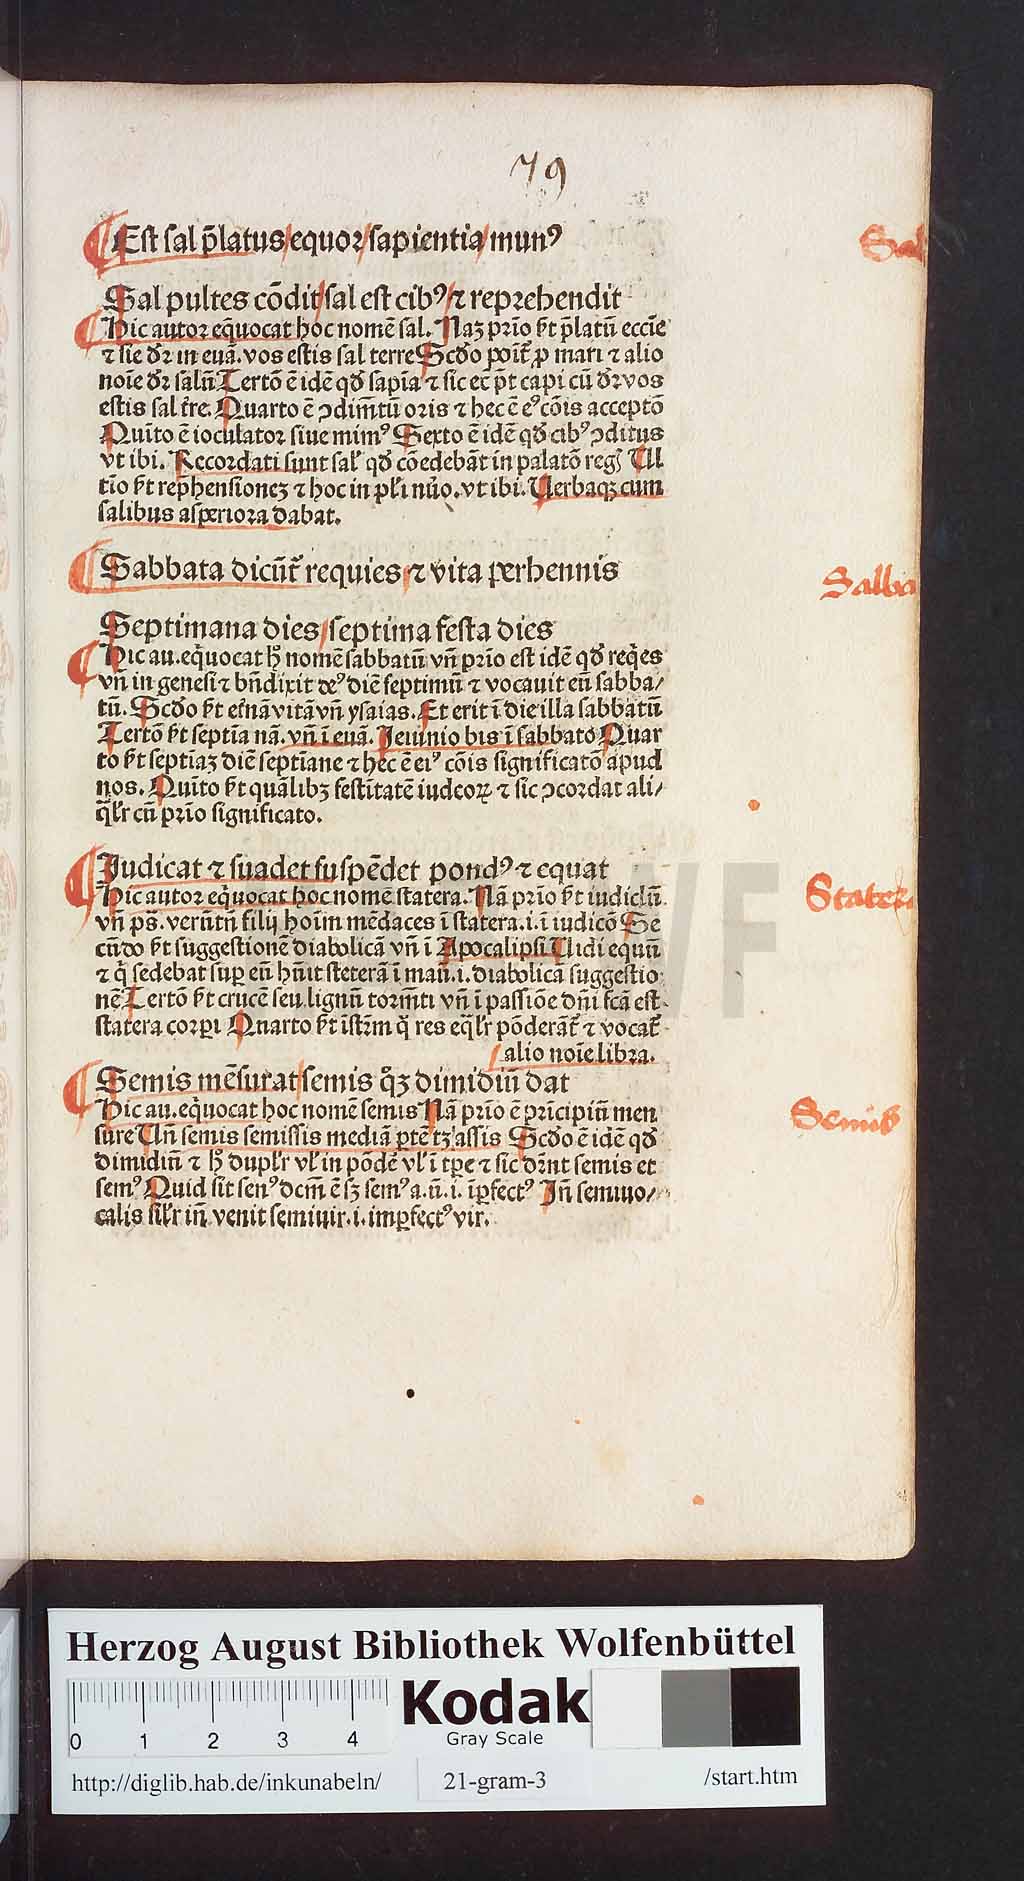 79
Est sal p̄latus/equoꝛ/sapientia/munꝰ
Sal
Sal pultes cōdit/sal est cibꝰ/⁊ repꝛehendit
Hic autoꝛ eq̄uocat hoc nomē sal. Naꝫ pꝛīo ſt p̄latū eccīe
⁊ sic dꝛ in euā. vos estis sal terre Scḋo poīt̄ ꝓ mari ⁊ alio
noīe dꝛ salū Tertō ē idē qḋ sapīa ⁊ sic ec̄ pt̄ capi cū dꝛ vos
estis sal tr̄e. Quarto ē ꝯdim̄tū oꝛis ⁊ hec ē eꝰ cōis acceptō
Quīto ē ioculatoꝛ siue mimꝰ Sexto ē idē qḋ cibꝰ ꝯditus
vt ibi. Accoꝛdati sunt sal̉ qḋ cōedebāt in palatō reg̉ Vl
tīo ſt rep̄hensioneꝫ ⁊ hoc in pl̉i nūo. vt ibi. Verbaqꝫ cum
salibus asperioꝛa dabat.
Sabbata dicūt̄ requies/⁊ vita perhennis
Salba
Septimana dies/septima festa dies
Hic au. eq̄uocat ħ nomē sabbatū vn̄ pꝛīo est idē qḋ req̄es
vn̄ in genesi ⁊ bn̄dixit deꝰ diē septimū ⁊ vocauit eū sabba/
tū. Scḋo ſt et̄nā vitā vn̄ ysaias. Et erit ī die illa sabbatū
Tertō ſt septīa nā. vn̄ ī euā. Ieiunio bis ī sabbato Quar
to ſt septīaꝫ diē septīane ⁊ hec ē eiꝰ cōis significatō apud
nos. Quīto ſt quālibꝫ festitatē iudeoꝝ ⁊ sic ꝯcoꝛdat ali/
q̄l̉r cū pꝛīo significato.
Iudicat ⁊ suadet suspēdet pondꝰ ⁊ equat
Hic autoꝛ eq̄uocat hoc nomē statera. Nā pꝛīo ſt iudiciū.
Stater
vn̄ ps̄. verūtn̄ filij hoīm mēdaces ī statera. i. ī iudicō Se
cūdo ſt suggestionē diabolicā vn̄ ī Apocalipsi Vidi equū
⁊ q̄ sedebat suꝑ eū hn̄it steterā ī manū. i. diabolicā suggestio
nē Tertō ſt crucē seu lignū toꝛm̄ti vn̄ ī passiōe dn̄i fcā est
statera coꝛꝑi Quarto ſt īstrm̄ q̄ res eq̄l̉r pōderāt̄ ⁊ vocat̄
alio noīe libꝛa.
Semis mēsurat/semis qͦꝫ dimidiū dat
Hic au. eq̄uocat hoc nomē semis Nā pꝛīo ē pꝛīcipiū men
Semis
sure Vn̄ semis semissis mediā ꝑtē tꝫ assis Scḋo ē idē qḋ
dimidiū ⁊ ħ dupl̉r vl̉ in pōdē vl̉ ī tꝑe ⁊ sic dn̄t semis et
semꝰ Quid sit senꝰ dcm̄ ē sꝫ semꝰ a. ū. i. īꝑfectꝰ In̄ semiuo/
calis sil̉r in̄ venit semiuir. i. imꝑfectꝰ vir.
Herzog August Bibliothek Wolfenbüttel
0 1 2 3 4
Kodak
Gray Scale
http://diglib.hab.de/inkunabeln/ 21-gram-3 /start.htm